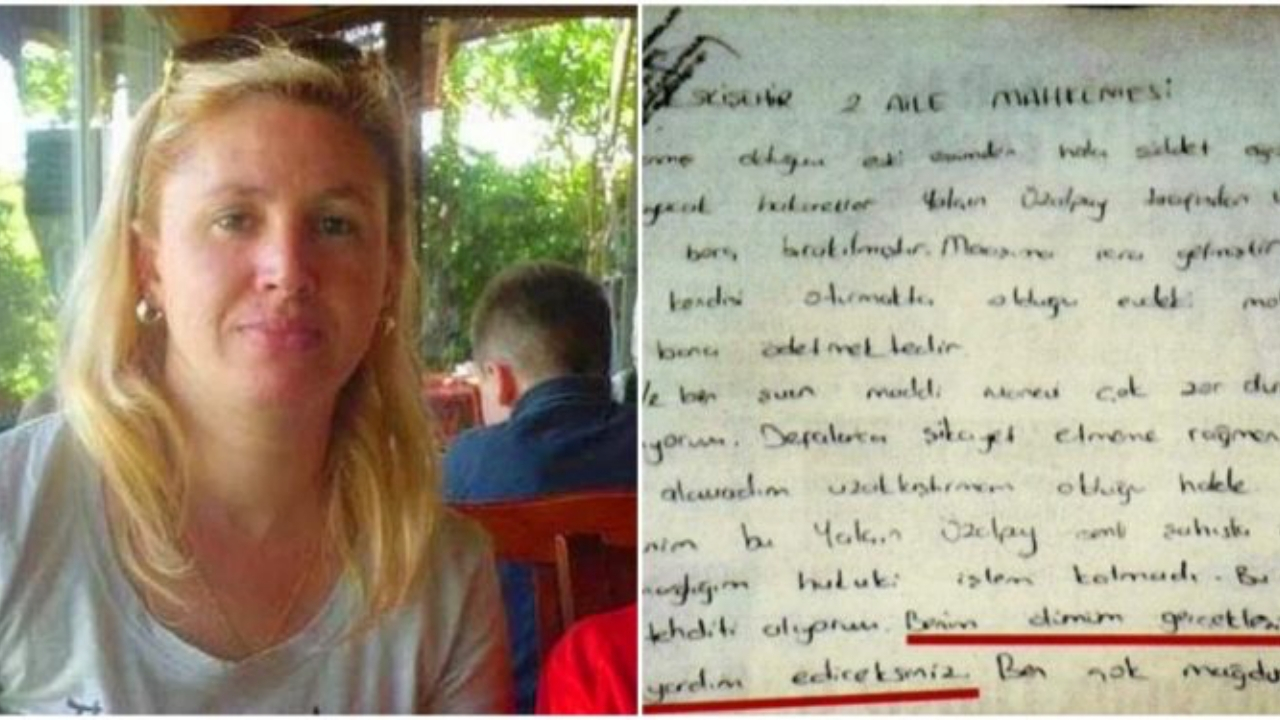 ESKİŞEHİR 2 AİLE MAHKEMESİ
olduğum eski eşimden hala şiddet
hakaretler Yalçın Özalpay tarafından
borç bırakılmıştır. Maaşıma icra gelmiştir
kendisi oturmakta olduğu evdeki
bana ödetmektedir.
ben şuan maddi manevi çok zor
Defalarca şikayet etmeme rağmen
alamadım uzaklaştırmam olduğu halde
bu Yalçın Özalpay şahısla
hukuki işlem kalmadı. Bu
tehditi alıyorum. Benim ölümüm
yardım ediceksiniz. Ben çok mağdu